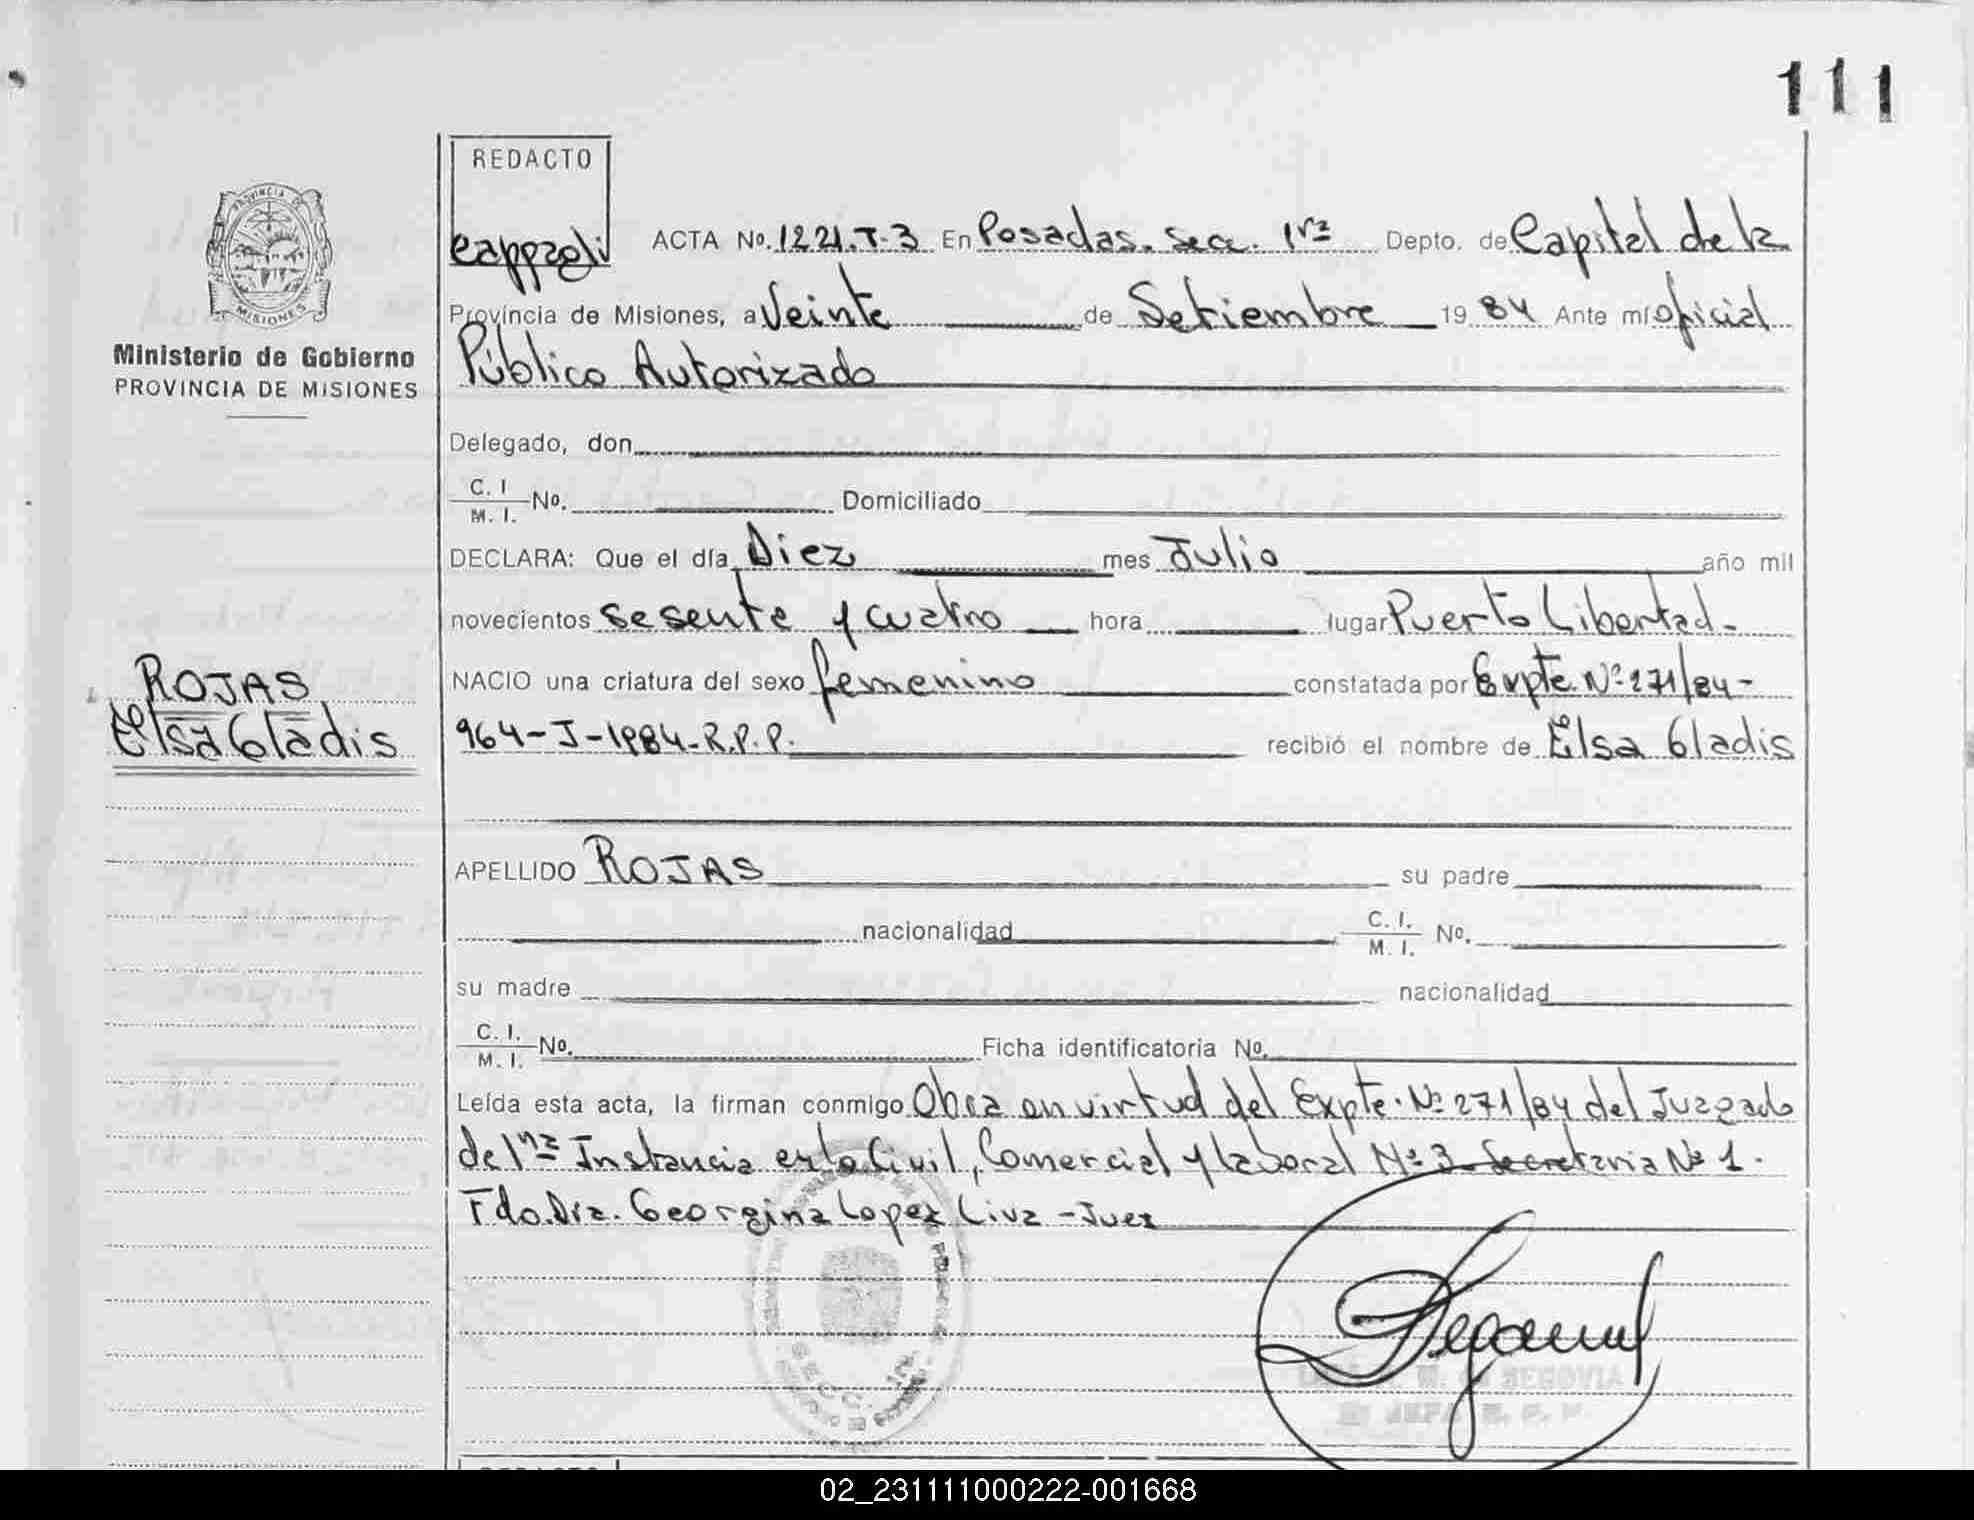 111
REDACTO
PROVINCIA DE
MISIONES
ACTA Nº. 1221.T.3 En Posadas. Secc. 1ra Depto. de Capital de la
Provincia de Misiones, a Veinte de Setiembre 19 84 Ante mí oficial
Público Autorizado
Ministerio de Gobierno
PROVINCIA DE MISIONES
Delegado, don
C. I
M. I. Nº. Domiciliado
DECLARA: Que el día Diez mes Julio año mil
novecientos sesenta y cuatro hora lugar Puerto Libertad-
ROJAS
Elsa Gladis
NACIO una criatura del sexo femenino constatada por Expte. Nº 271/84-
964-J-1984-R.P.P. recibió el nombre de Elsa Gladis
APELLIDO ROJAS su padre
nacionalidad C. I.
M. I. Nº.
su madre nacionalidad
C. I.
M. I. Nº. Ficha identificatoria Nº.
Leída esta acta, la firman conmigo Obra en virtud del Expte. Nº 271/84 del Juzgado
de 1ra Instancia en lo Civil, Comercial y laboral Nº 3 Secretaria Nº 1.
Fdo. Dra. Georgina Lopez Liva - Juez
SECC. 1ra
SEGOVIA
JEFA R. P. P.
REDACTO
02_231111000222-001668